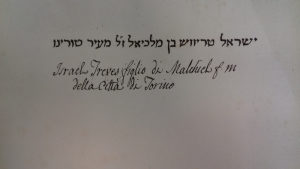 ישראל טריוויש בן מלכיאל ז״ל מעיר טורינו
Israel Treves figlio di Malchiel f m
della Città di Torino